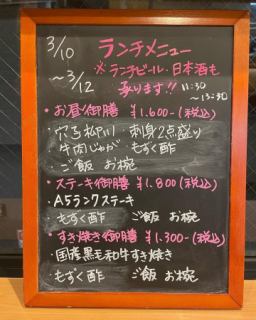 3/10
～3/12
ランチメニュー
※ランチビール・日本酒も
承ります!! 11:30
～13:30
・お昼御膳 ¥1.600-(税込)
穴子柳川 刺身2点盛り
牛肉じゃが もずく酢
ご飯 お椀
・ステーキ御膳 ¥1.800(税込)
A5ランクステーキ
もずく酢 ご飯 お椀
・すき焼き御膳 ¥1.300-(税込)
・国産黒毛和牛すき焼き
もずく酢 ご飯 お椀